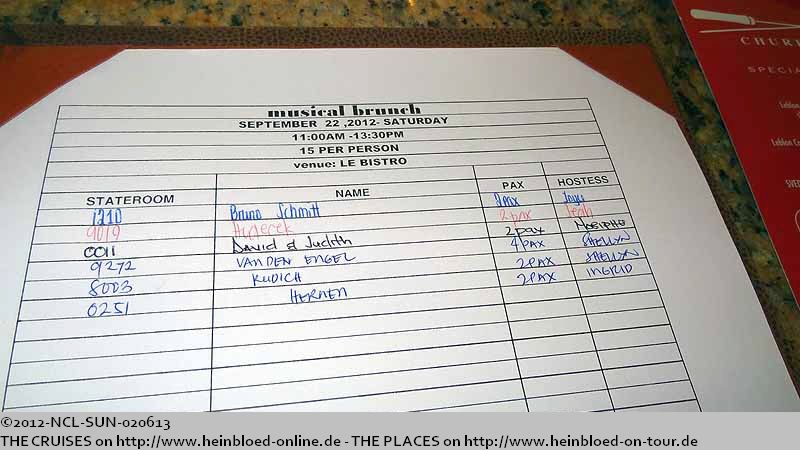 musical brunch
SEPTEMBER 22 ,2012- SATURDAY
11:00AM -13:30PM
15 PER PERSON
venue: LE BISTRO
STATEROOM NAME PAX HOSTESS
1210 Bruno Schmitt 2pax Joyu
9019 2 pax Leah
0011 David & Judith 2pax
9272 VAN DEN ENGEL 4pax SHELLYN
8003 RUDICH 2PAX SHELLYN
0251 HERMEN 2PAX INGRID
CHUR
SPECIA
Leblon
Leblon Ca
SVED
©2012-NCL-SUN-020613
THE CRUISES on http://www.heinbloed-online.de - THE PLACES on http://www.heinbloed-on-tour.de